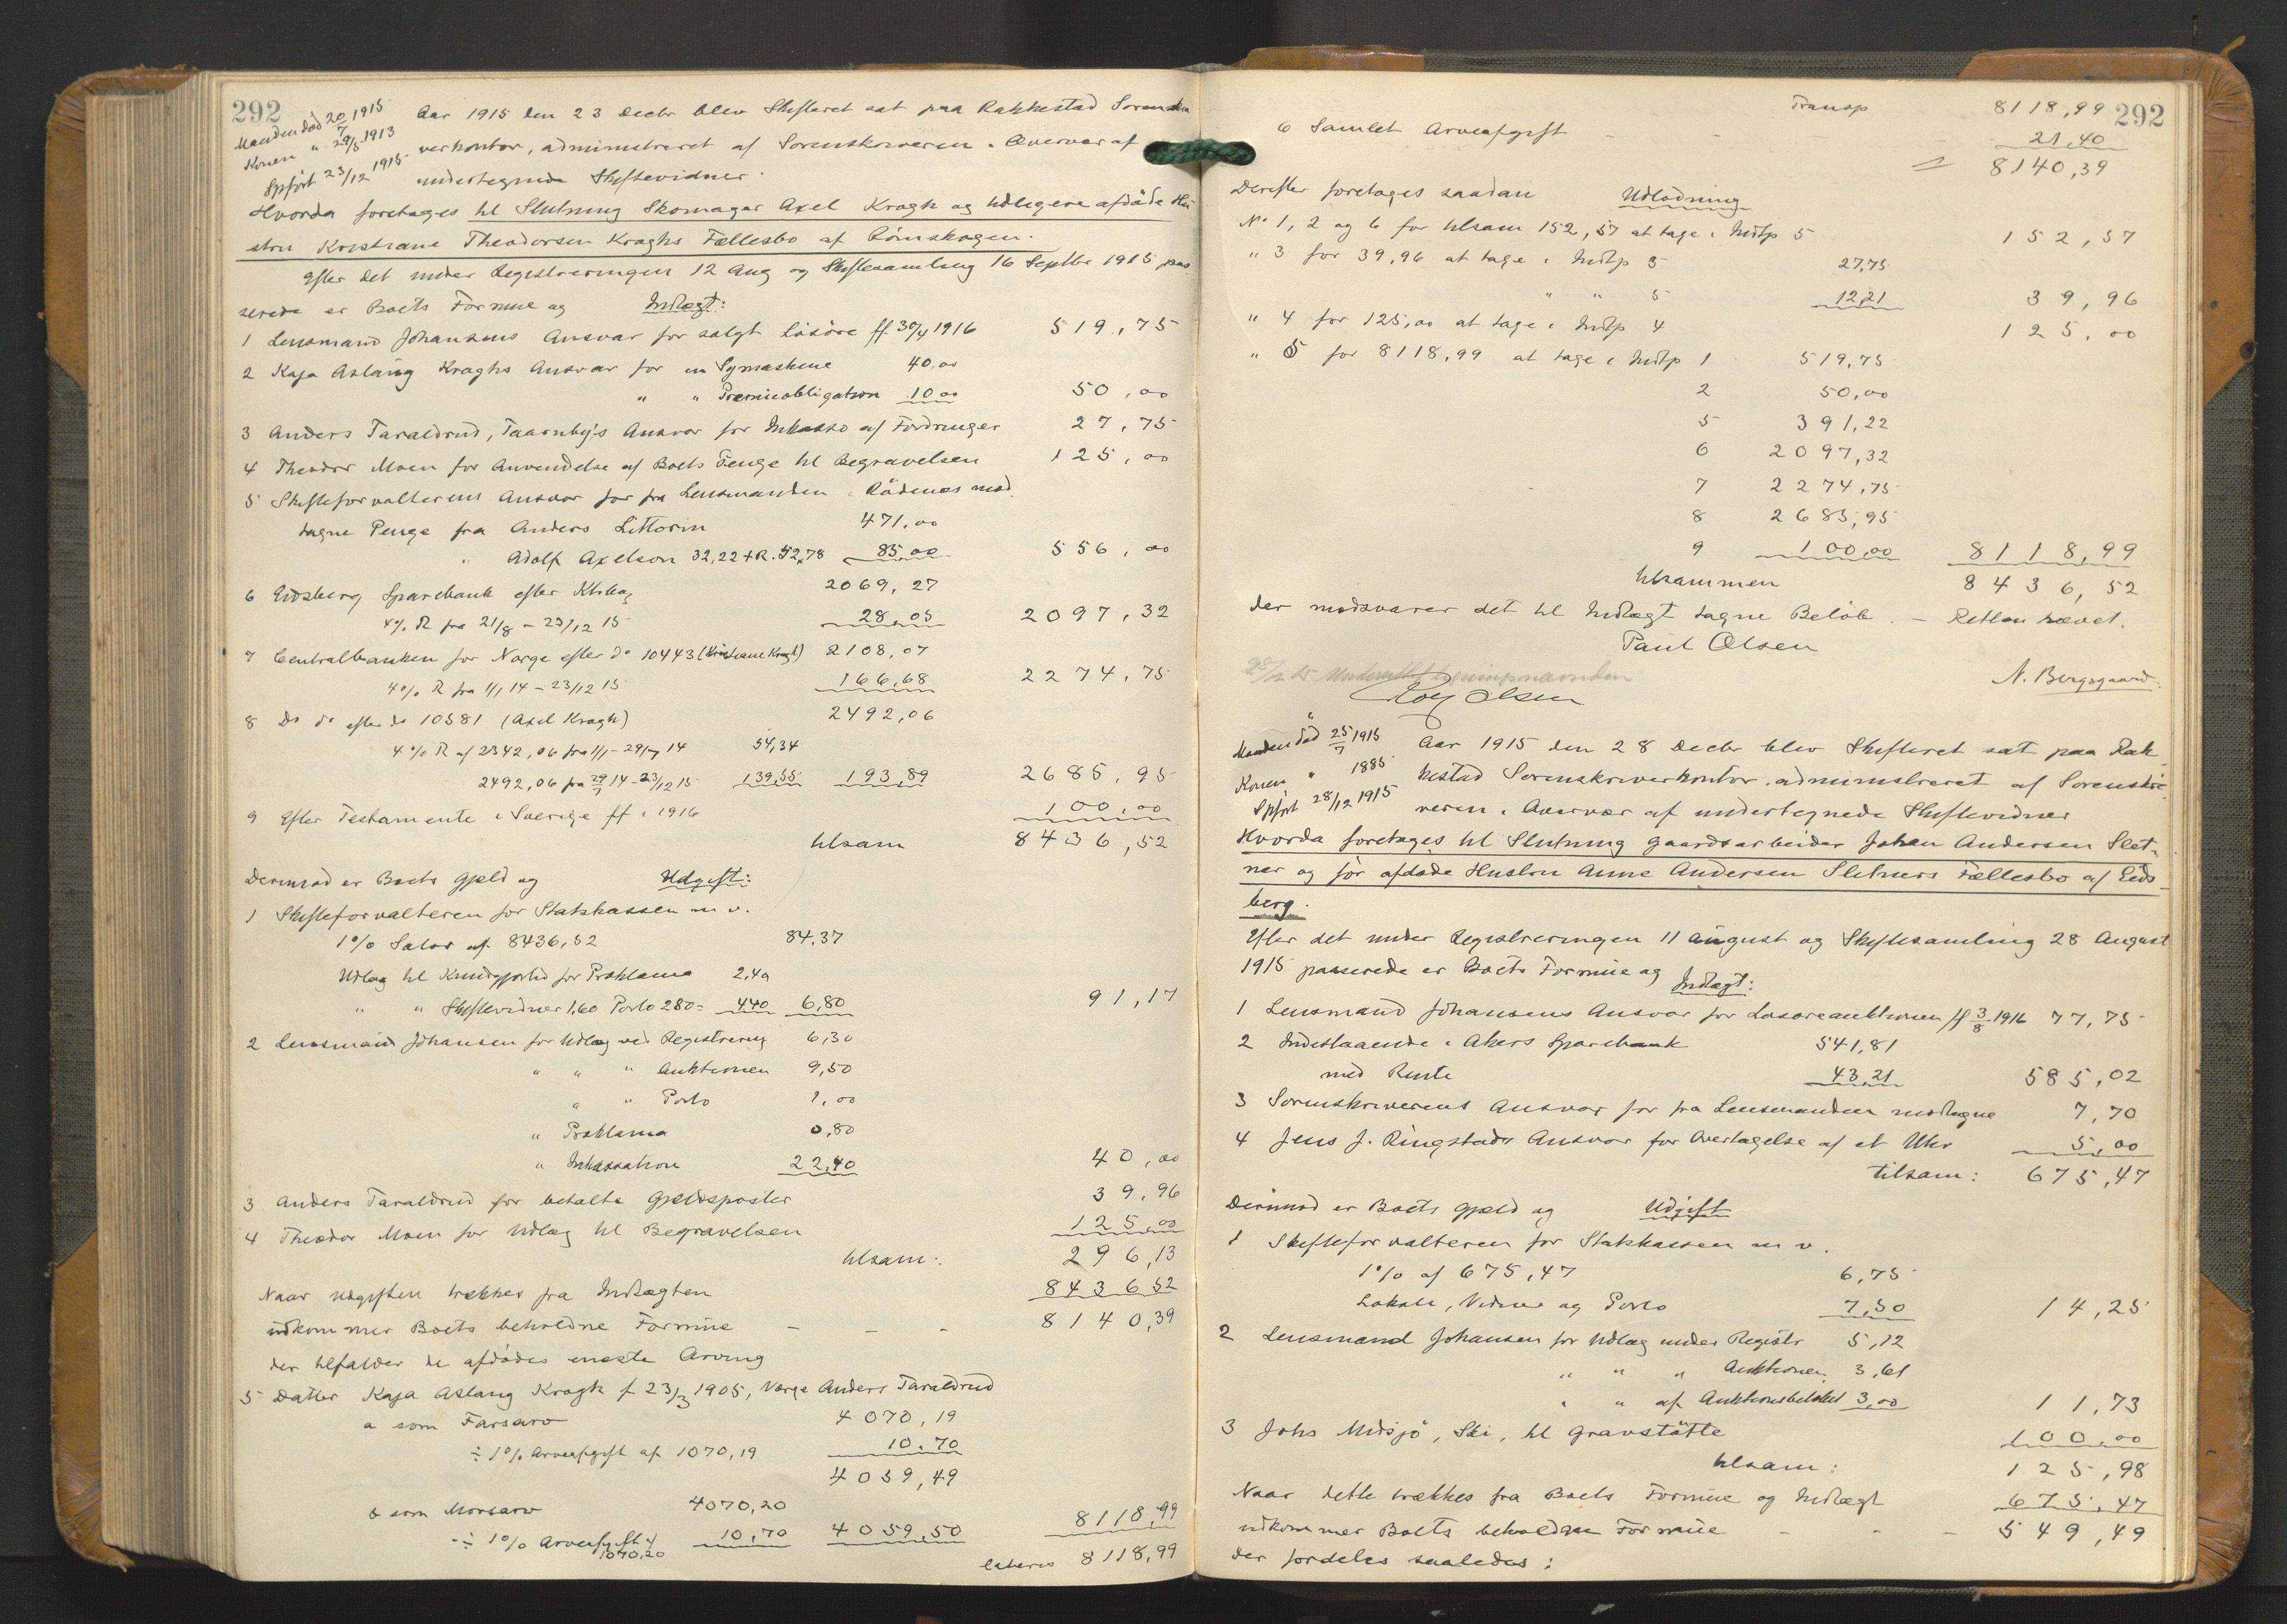 292
Manden död 20/7 1915
Konen " 29/5 1913
Spfört 23/12 1915
Aar 1915 den 23 Decbr blev Skifteret sat paa Rakkestad Sorenskri
verkontor, administreret af Sorenskriveren i Overvær af
undertegnede Skiftevidner.
Hvorda foretages til Slutning Skomager Axel Kragh og tidligere afdöde Hu
stru Kristiane Theodorsen Kraghs Fællesbo af Römskogen.
Efter det under Registreringen 12 Aug og Skiftesamling 16 Septbr 1915 pas
serede er Boets Formue og Indtægt:
1 Lensmand Johansens Ansvar for solgt Lösöre ff 30/4 1916 519,75
2 Kaja Aslaug Kraghs Ansvar for en Symaskine 40,00
" " Præmieobligation 10,00 50,00
3 Anders Taraldrud, Taarnby's Ansvar for Inkasso af Fordringer 27,75
4 Theodor Moen for Anvendelse af Boets Penge til Begravelsen 125,00
5 Skifteforvalterens Ansvar for fra Lensmanden i Rödenes mod
tagne Penge fra Anders Littorin 471,00
" Adolf Axelson 32,22 + R. 52,78 85,00 556,00
6 Eidsberg Sparebank efter Ktrbog 2069,27
4% R fra 21/8 - 23/12 15 28,05 2097,32
7 Centralbanken for Norge efter do 10443 (Kristiane Kragh) 2108,07
4% R fra 1/1 14 - 23/12 15 166,68 2274,75
8 Do do efter do 10581 (Axel Kragh) 2492,06
4% R af 2342,06 fra 1/1 - 29/7 14 54,34
2492,06 fra 29/7 14 - 23/12 15 139,55 193,89 2685,95
9 Efter Testamente i Sverige ff i 1916 100,00
tilsam 8436,52
Derimod er Boets Gjæld og Udgift:
1 Skifteforvalteren for Statskassen m v.
1% Salær af 8436,52 84,37
Udlæg til Kundgjörelse for Proklama 2,40
" " Skiftevidner 1,60 Porto 280 = 440 6,80 91,17
2 Lensmand Johansen for Udlæg ved Registrering 6,30
" " " Auktionen 9,50
" " Porto 1,00
" Proklama 0,80
" Inkassation 22,40 40,00
3 Anders Taraldrud for betalte Gjeldsposter 39,96
4 Theodor Moen for Udlæg til Begravelsen 125,00
tilsam: 296,13
Naar Udgiften trækkes fra Indtægten 8436 52
udkommer Boets beholdne Formue - - - 8140,39
der tilfalder de afdödes eneste Arving
5 Datter Kaja Aslaug Kragh f 23/3 1905, Værge Anders Taraldrud
a som Farsarv 4070,19
÷ 1% Arveafgift af 1070,19 10,70
4059,49
b som Morsarv 4070,20
÷ 1% Arveafgift af 1070,20 10,70 4059,50 8118,99
lateris 8118,99
Transp 8118,99 292
6 Samlet Arveafgift - - - 21,40
= 8140,39
Derefter foretages saadan Udlodning
No 1, 2 og 6 for tilsam 152,57 at tage i Indtp 5 152,57
" 3 for 39,96 at tage i Indtp 3 27,75
" " 5 12,21 39,96
" 4 for 125,00 at tage i Indtp 4 125,00
" 5 for 8118,99 at tage i Indtp 1 519,75
2 50,00
5 391,22
6 2097,32
7 2274,75
8 2685,95
9 100,00 8118,99
tilsammen 8436,52
der modsvarer det til Indtægt tagne Belöb. - Retten hævet.
Paul Olsen
N. Bergsgaard
Rolf Olsen
Manden död 25/7 1915
Konen " 1885
Spfört 28/12 1915
Aar 1915 den 28 Decbr blev Skifteret sat paa Rak-
kestad Sorenskriverkontor, administreret af Sorenskri
veren i Overvær af undertegnede Skiftevidner
Hvorda foretages til Slutning Gaardsarbeider Johan Andersen Slet-
ner og för afdöde Hustru Anne Andersen Sletners Fællesbo af Eids-
berg.
Efter det under Registreringen 11 August og Skiftesamling 28 August
1915 passerede er Boets Formue og Indtægt:
1 Lensmand Johansens Ansvar for Lösöreauktionen ff 3/8 1916 77,75
2 Indestaaende i Akers Sparebank 541,81
med Rente 43,21 585,02
3 Sorenskriverens Ansvar for fra Lensmanden modtagne 7,70
4 Jens J. Ringstads Ansvar for Overtagelse af et Uhr 5,00
tilsam: 675,47
Derimod er Boets Gjæld og Udgift
1 Skifteforvalteren for Statskassen m v.
1% af 675,47 6,75
Lokale, Vidner og Porto 7,50 14,25
2 Lensmand Johansen for Udlæg under Registr 5,12
" " " Auktionen 3,61
" " af Auktionsbelöbet 3,00 11,73
3 Johs Midsjö, Ski, til Gravstötte 100,00
tilsam: 125,98
Naar dette trækkes fra Boets Formue og Indtægt 675,47
udkommer Boets beholdne Formue - - - 549,49
der fordeles saaledes: